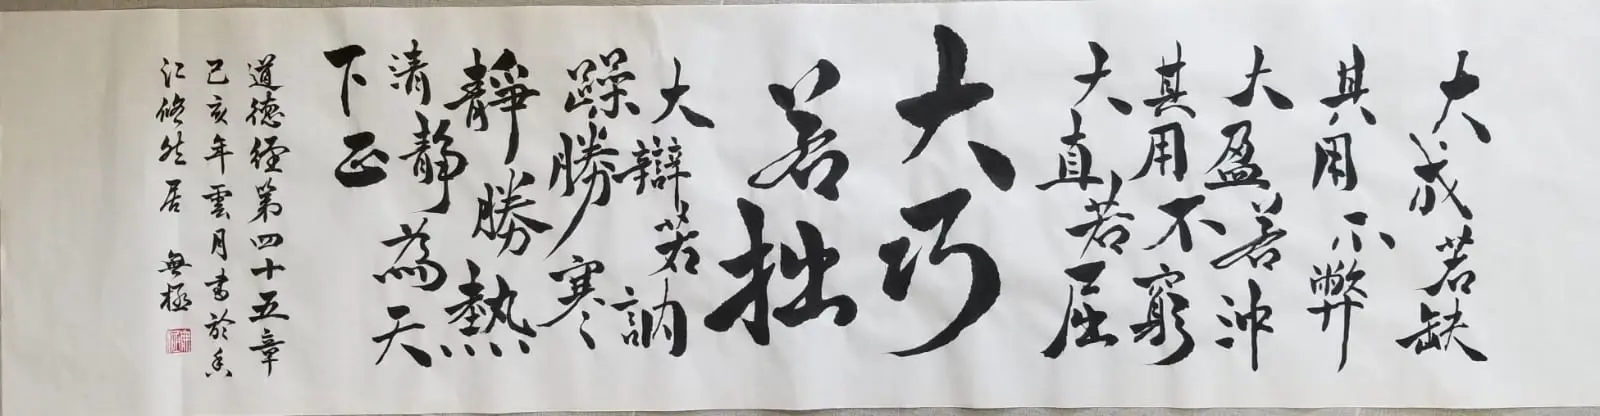 大成若缺
其用不弊
大盈若沖
其用不窮
大直若屈
大巧
若拙
大辯若訥
躁勝寒
靜勝熱
清靜為天
下正
道德經第四十五章
己亥年雲月書於香
江悠然居 無極